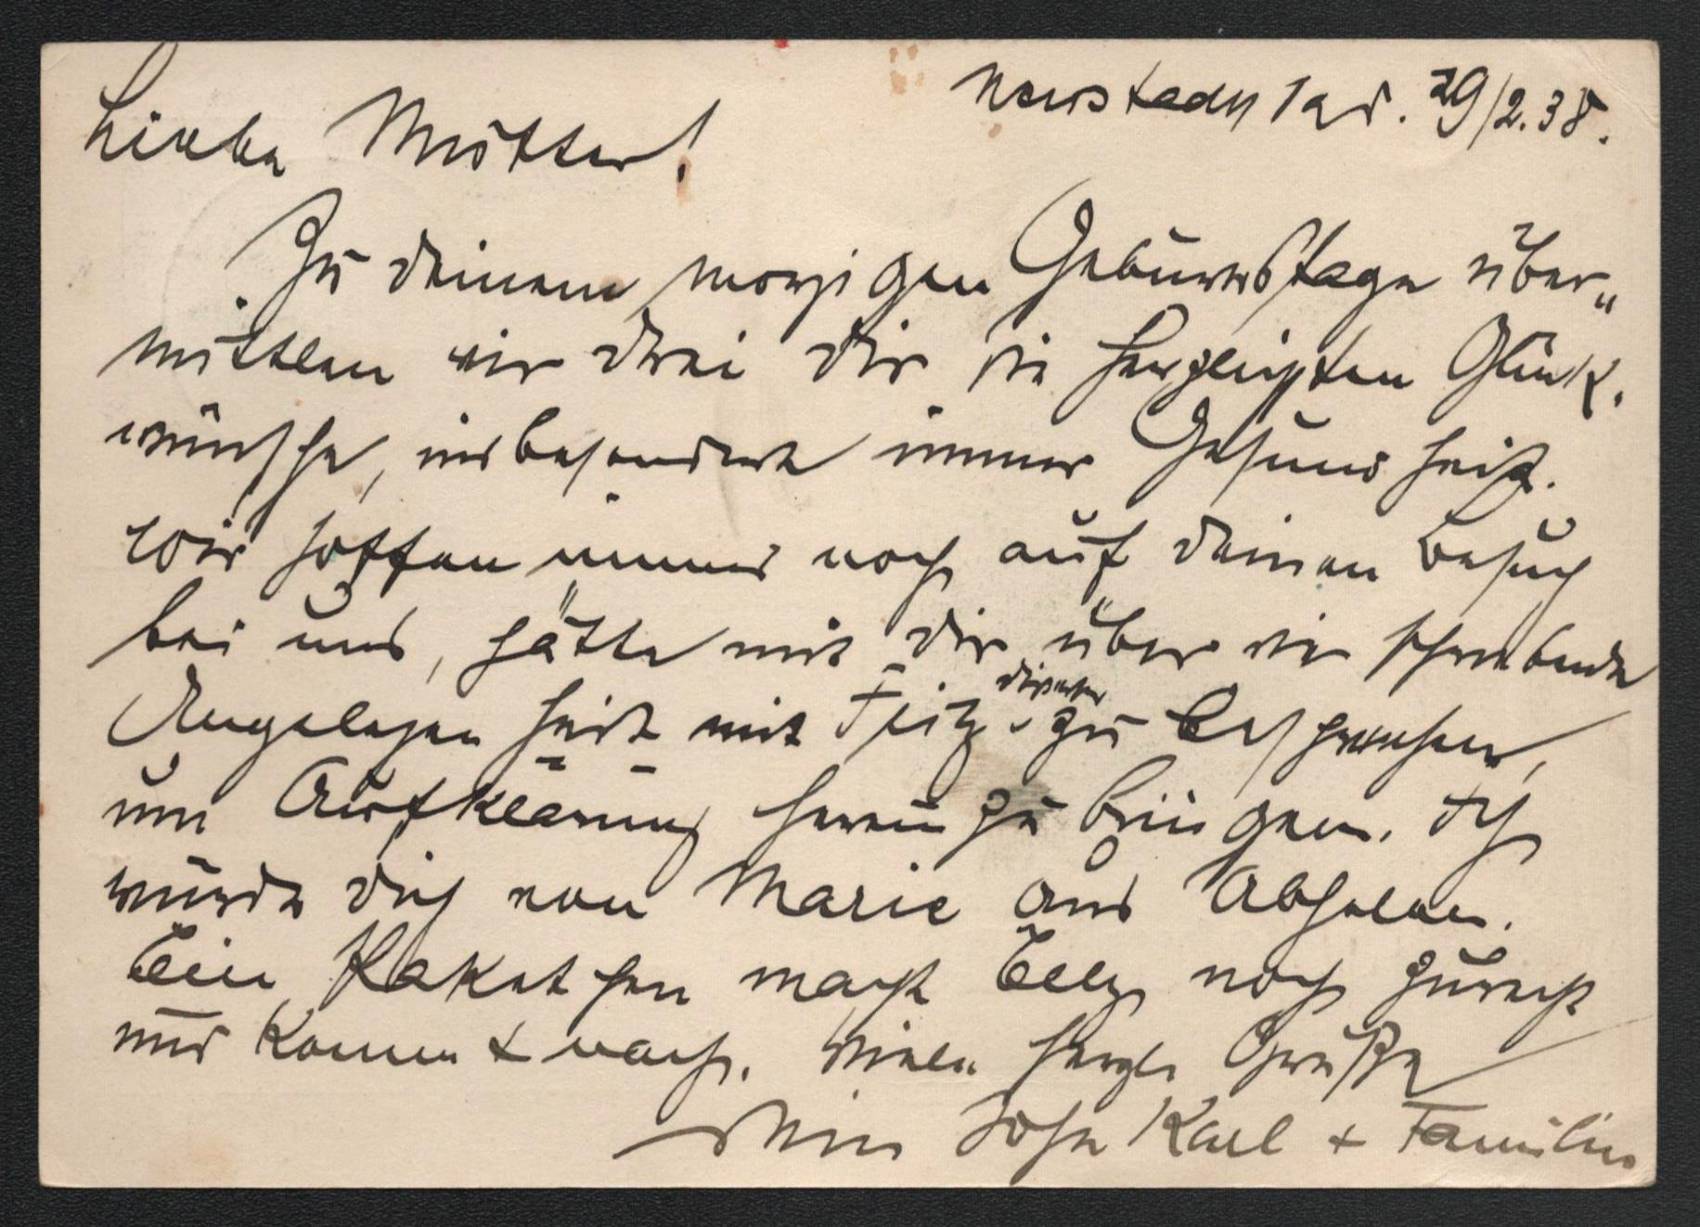 Neustadt 29/2.38.
Liebe Mutter!
Zu deinem morgigen Geburtstage über„
mitteln wir drei dir die herzlichsten Glück.
wünsche, insbesondere immer Gesundheit.
Wir hoffen immer noch auf deinen Besuch
bei uns, hätte mit dir über die schwebende
Angelegenheit mit Fritz zu besprechen,
um Aufklärung herein zu bringen. Ich
würde dich von Marie aus Abholen.
Ein Paketchen macht Elly noch zurecht
und kommt nach. Viele herzl. Grüße
dein Sohn Karl + Familie